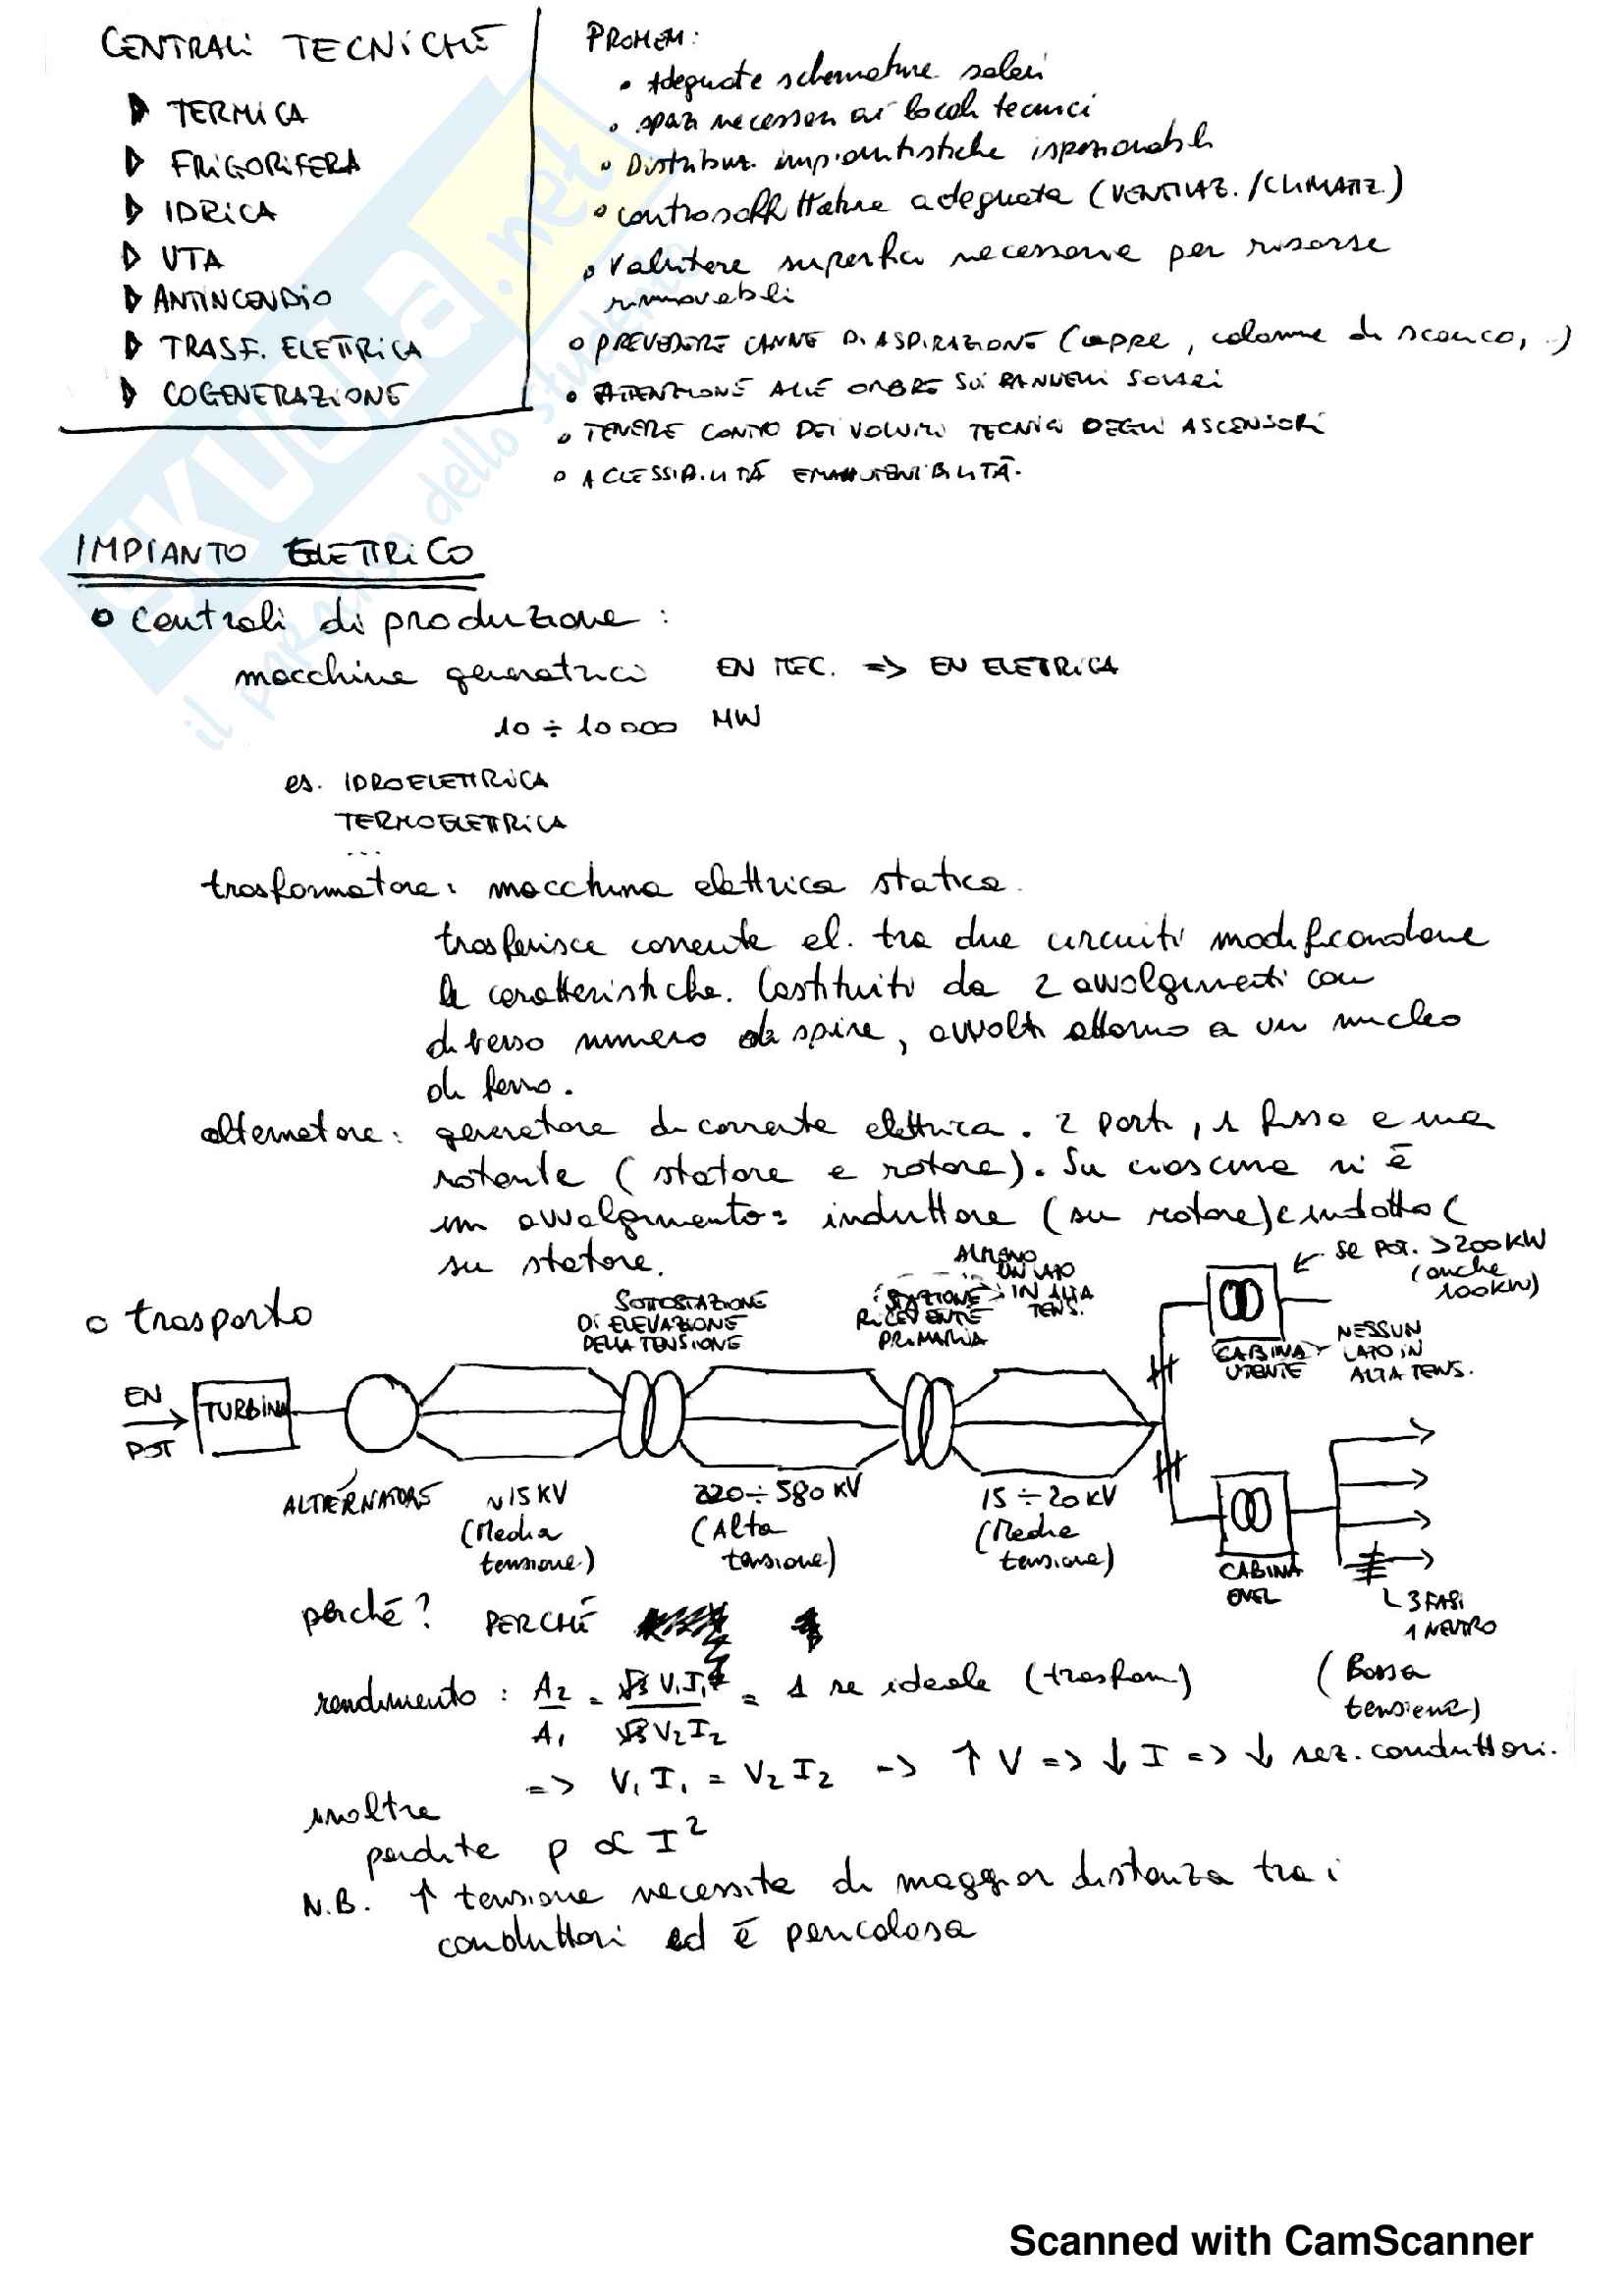 CENTRALI TECNICHE
▷ TERMICA
▷ FRIGORIFERA
▷ IDRICA
▷ UTA
▷ ANTINCENDIO
▷ TRASF. ELETTRICA
▷ COGENERAZIONE
PROMEM:
• Adeguate schermature solari
• spazi necessari ai locali tecnici
• Distribuz. impiantistiche ispezionabili
• controsoffittature adeguata (VENTILAZ./CLIMATIZ.)
• Valutare superfici necessarie per risorse
rinnovabili
• PREVEDERE CANNE DI ASPIRAZIONE (cappe, colonne di scarico, ..)
• ATTENZIONE ALLE OMBRE SUI PANNELLI SOLARI
• TENERE CONTO DEI VOLUMI TECNICI DEGLI ASCENSORI
• ACCESSIBILITÀ E MANUTENIBILITÀ.
SKUOLA.net
il paradiso dello studente
IMPIANTO ELETTRICO
o Centrali di produzione :
macchine generatrici EN MEC. => EN ELETRICA
10 ÷ 10000 MW
es. IDROELETTRICA
TERMOELETTRICA
...
trasformatore: macchina elettrica statica.
trasferisce corrente el. tra due circuiti modificandone
le caratteristiche. Costituito da 2 avvolgimenti con
diverso numero di spire, avvolti attorno a un nucleo
di ferro.
alternatore: generatore di corrente elettrica. 2 parti, 1 fissa e una
rotante (statore e rotore). Su ciascuna vi è
un avvolgimento: induttore (su rotore) e indotto (
su statore.
o trasporto
SOTTOSTAZIONE
DI ELEVAZIONE
DELLA TENSIONE
STAZIONE
RICEVENTE
PRIMARIA
ALMENO
UN LATO
IN ALTA
TENS.
SE POT. >200KW
(anche
100kW)
CABINA
UTENTE
NESSUN
LATO IN
ALTA TENS.
EN
POT
TURBINA
ALTERNATORE
~15 KV
(Media
tensione)
220 ÷ 580 KV
(Alta
tensione)
15 ÷ 20 KV
(Media
tensione)
CABINA
ENEL
3 FASI
1 NEUTRO
(Bassa
tensione)
perché? PERCHÉ
rendimento : A2/A1 = √3 V1 I1 / √3 V2 I2 = 1 se ideale (trasform)
=> V1 I1 = V2 I2 -> ↑ V => ↓ I => ↓ sez. conduttori.
inoltre
perdite p ∝ I²
N.B. ↑ tensione necessita di maggior distanza tra i
conduttori ed è pericolosa
Scanned with CamScanner